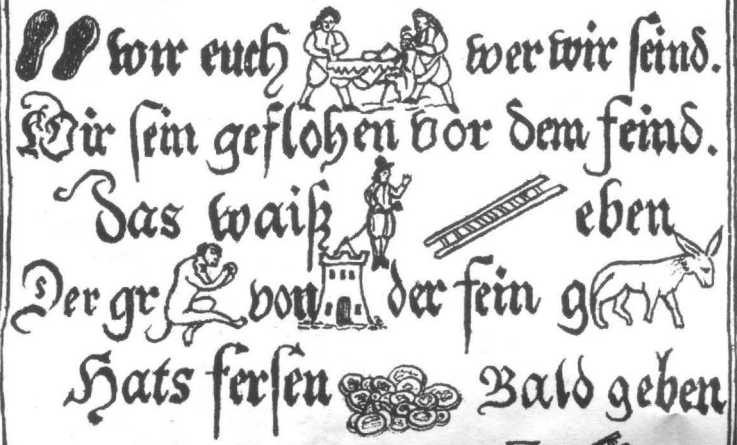 wir euch wer wir seind.
Wir sein geflohen vor dem feind.
das waiß eben
Der gr von der fein g
Hats fersen Bald geben